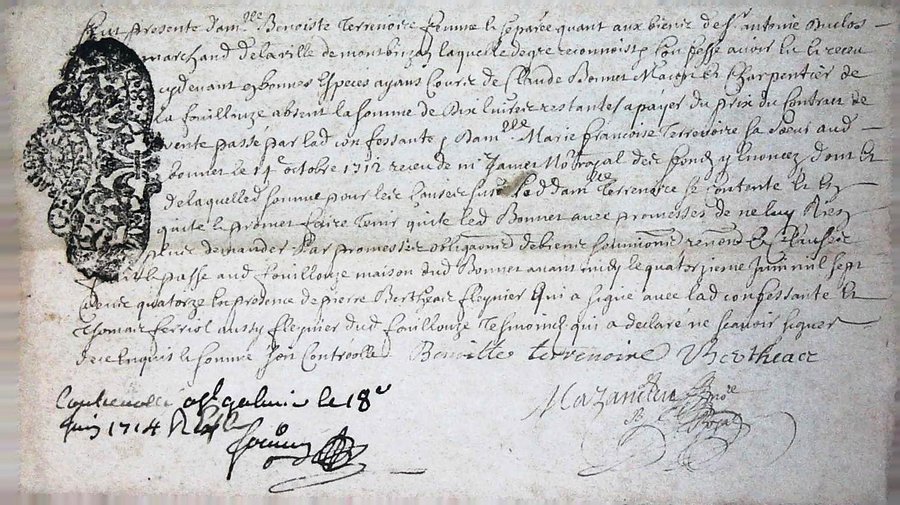 Fut presente Dam.lle Benoiste Terrenoire femme separée quant aux biens de s.r antoine duclos
marchand de la ville de montbrizon laquelle de gré reconnoist confesse avoir eu et receu
cydevant en bonnes Especes ayans Cours de Claude Bonnet Charpentier de
la fouillouze absent la somme de Dix livres restantes a payer du prix du Contract de
vente passé par lad confessante Dam.lle Marie francoise Terrenoire sa soeur aud
bonnet le 14 octobre 1712 receu de m.e Nott royal des fonds y Enoncez dont Et
de laquelled somme pour les causes susd Lad dam.lle Terrenoire se contente Et En
quitte Et promet faire tenir quitte led Bonnet avec promesses de ne luy Rien
plus demander Par promesse obligaon de biens soumissions renonc Et clauses
fait Et passé aud fouillouze maison dud Bonnet avant midy le quatorzieme juin mil sept
Cents quatorze En presence de pierre Bertheas qui a signé avec lad confessante Et
Thomas ferriol aussy dud fouillouze Tesmoins qui a declaré ne scavoir signer
de ce Enquis Et sommé soit Controollé Benoiste terrenoire Bertheas
Mazandieu
Controollé a st galmier le 18e
juin 1714 R